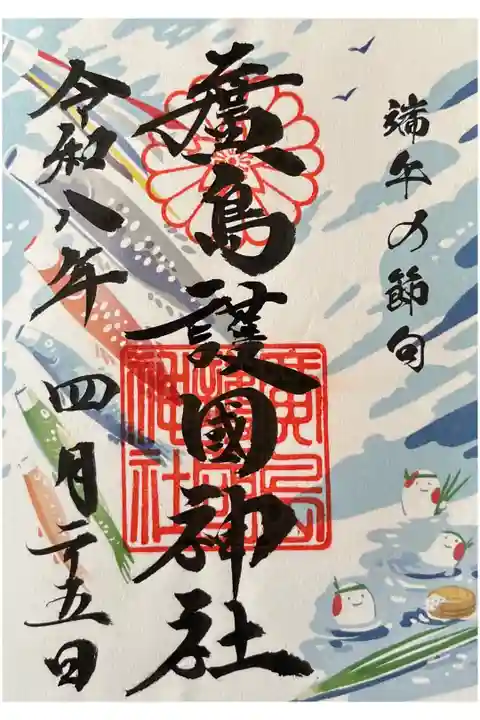 端午の節句
廣島護國神社
廣島
護國
神社
令和八年 四月二十五日